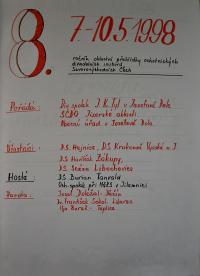 8.
7.-10.5.1998
ročník oblastní přehlídky ochotnických
divadelních souborů
Severovýchodních Čech
Pořádá: Div. spolek J. K. Tyl v Josefově Dole
SČDO Jizerské oblasti
Obecní úřad v Josefově Dole
Účastníci: DS. Hejnice, DS Krakonoš Vysoké n. J.
DS Havlíček Zákupy,
DS Scéna Libochovice
Hosté: DS Burian Tanvald
Och. spolek při MěKS v Jilemnici
Porota: Josef Doležal - Děčín
Dr. František Sokol - Liberec
Ilja Bureš - Teplice